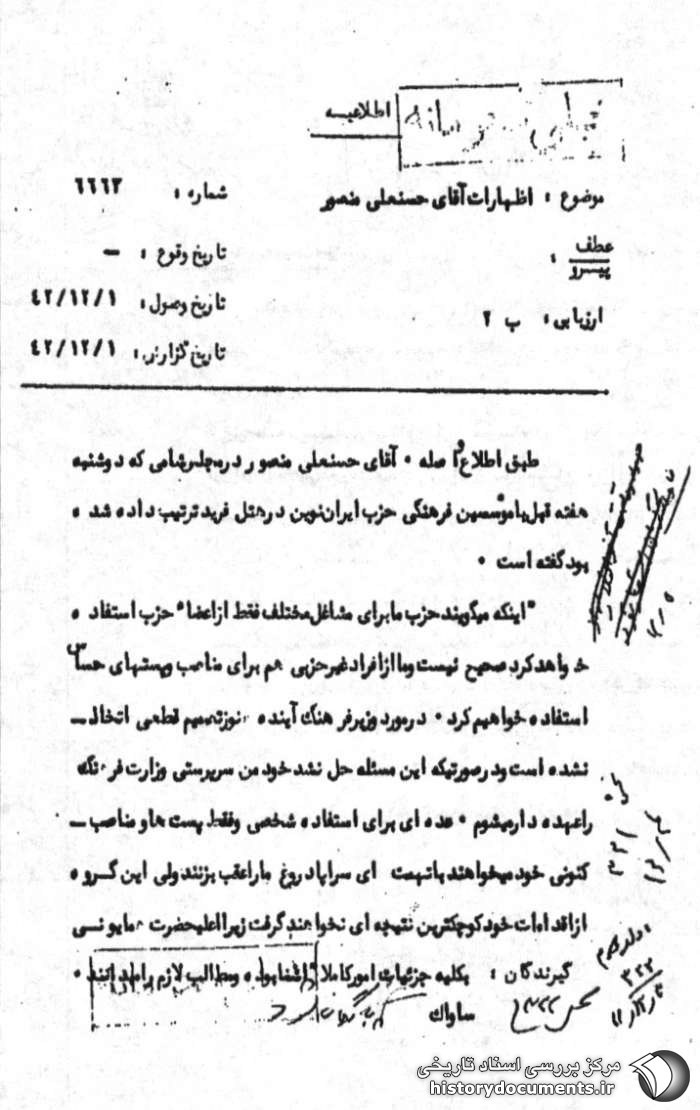 اطلاعیه
موضوع : اظهارات آقای حسنعلی منصور
شماره : ٦٦٦٣
عطف
پیرو :
تاریخ وقوع : –
تاریخ وصول : ٤٢/١٢/١
ارزیابی : ب ٢
تاریخ گزارش : ٤٢/١٢/١
طبق اطلاع واصله ٠ آقای حسنعلی منصور در مجلس شامی که دوشنبه
هفته قبل با مؤسسین فرهنگی حزب ایران نوین در هتل فرید ترتیب داده شده
بود گفته است ٠
"اینکه میگویند حزب ما برای مشاغل مختلف فقط از اعضا" حزب استفاده
خواهد کرد صحیح نیست وما از افراد غیر حزبی هم برای مناصب وپستهای حساس
استفاده خواهیم کرد ٠ در مورد وزیر فرهنگ آینده هنوز تصمیم قطعی اتخاذ ــ
نشده است ودر صورتیکه این مسئله حل نشد خود من سرپرستی وزارت فرهنگ
را عهده دار میشوم ٠ عده ای برای استفاده شخصی وفقط پست ها و مناصب ــ
کنونی خود میخواهند با تهمت ای سراپا دروغ ما را عقب بزنند ولی این گروه
از اقدامات خود کوچکترین نتیجه ای نخواهند گرفت زیرا اعلیحضرت همایونی
بکلیه جزئیات امور کاملا آشنا بوده ومطالب لازم را میدانند ٠
گیرندگان :
ساواک
٣٢٢
مرکز بررسی اسناد تاریخی
historydocuments.ir